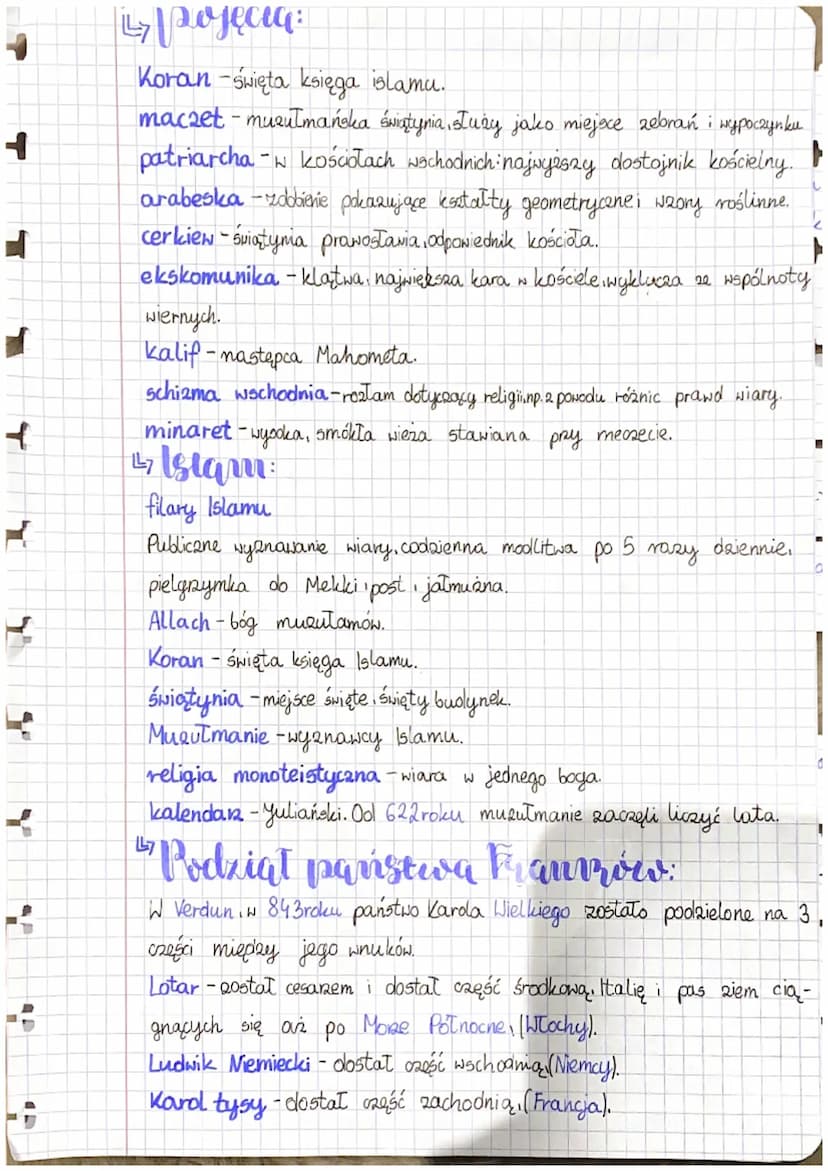 ↳ pojęcia:
Koran - święta księga islamu.
maczet - muzułmańska świątynia, służy jako miejsce zebrań i wypoczynku
patriarcha - w kościołach wschodnich: najwyższy dostojnik kościelny.
arabeska - zdobienie pokazujące kształty geometryczne i wzory roślinne.
cerkiew - świątynia prawosławia, odpowiednik kościoła.
ekskomunika - klątwa, największa kara w kościele, wyklucza ze wspólnoty
wiernych.
kalif - następca Mahometa.
schizma wschodnia - rozłam dotyczący religii, np. z powodu różnic prawd wiary.
minaret - wysoka, smókła wieża stawiana przy meczecie.
↳ Islam:
filary Islamu
Publiczne wyznawanie wiary, codzienna modlitwa po 5 razy dziennie,
pielgrzymka do Mekki, post, jałmużna.
Allach - bóg muzułamów.
Koran - święta księga Islamu.
świątynia - miejsce święte, święty budynek.
Muzułmanie - wyznawcy Islamu.
religia monoteistyczna - wiara w jednego boga.
kalendarz - Yuliański. Od 622 roku muzułmanie zaczęli liczyć lata.
↳ Podział państwa Franków:
W Verdun, w 843 roku państwo Karola Wielkiego zostało podzielone na 3
części między jego wnuków.
Lotar - został cesarzem i dostał część środkową, Italię i pas ziem cią-
gnących się aż po Morze Północne, (Włochy).
Ludwik Niemiecki - dostał część wschodnią, (Niemcy).
Karol Łysy - dostał część zachodnią, (Francja).